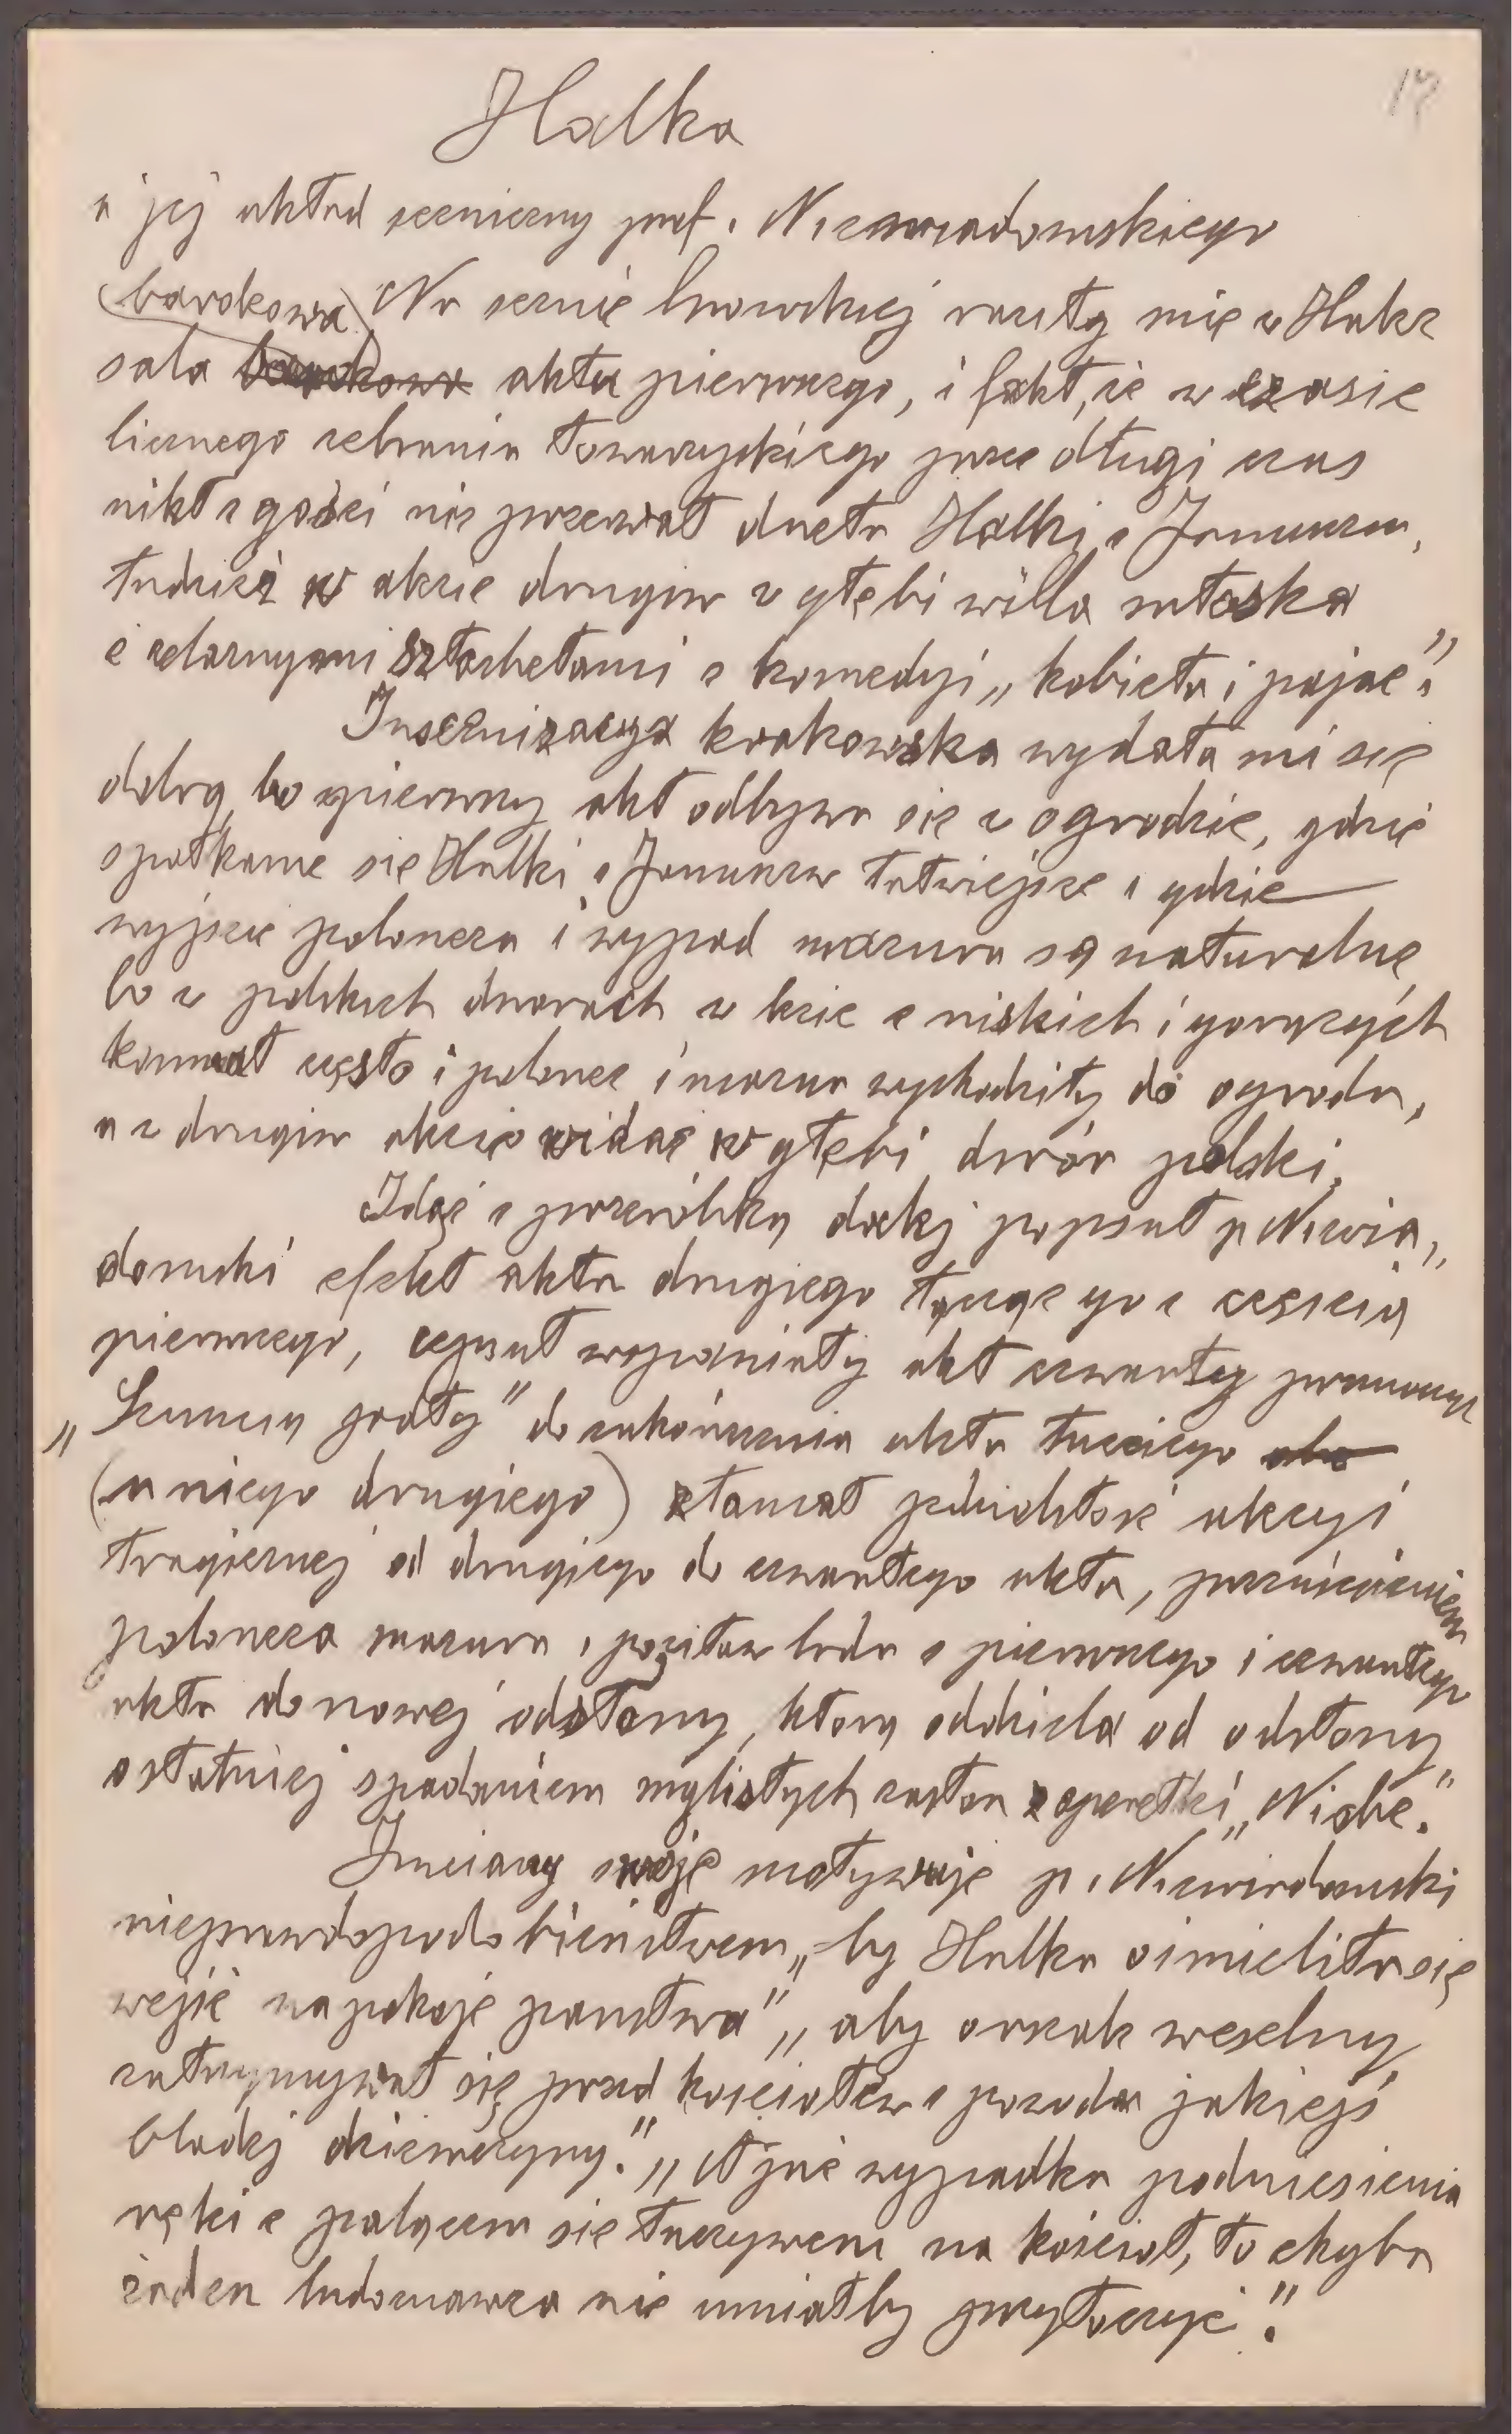 17
Halka
i jej układ sceniczny prof. Niewiadomskiego
barokowa Na scenie lwowskiej raziły mię w Halce
sala barokowa aktu pierwszego, i fakt, że w czasie
licznego zebrania towarzyskiego przez długi czas
nikt z gości nie przerwał duetu Halki z Januszem,
tudzież w akcie drugim w głębi willa włoska
z żelaznymi sztachetami z komedyi „kobieta i pajac".
Inscenizacya krakowska wydała mi się
dobrą, bo pierwszy akt odbywa się w ogrodzie, gdzie
spotkanie się Halki z Januszem łatwiejsze i gdzie
wyjście poloneza i wypad mazura są naturalne
bo w polskich dworach w lecie z niskich i gorących
komnat często i polonez i mazur wychodziły do ogrodu,
a w drugim akcie widać w głębi dwór polski.
Idąc z przeróbką dalej popsuł p. Niewia„
domski efekt aktu drugiego łącząc go z częścią
pierwszego, zepsuł wspaniały akt czwarty
„Szumią jodły" do zakończenia aktu trzeciego
(u niego drugiego) złamał jednolitość akcyi
tragicznej od drugiego do czwartego aktu, przerzuceniem
poloneza mazura i ludu z pierwszego i czwartego
aktu do nowej odsłony, którą oddziela od odsłony
ostatniej spadaniem mglistych zasłon z operetki „Niobe."
Zmiany swoje motywuje p. Niewiadomski
nieprawdopodobieństwem „by Halka ośmieliła się
wejść na pokoje państwa" „aby orszak weselny
zatrzymywał się przed kościołem z powodu jakiejś
bladej dziewczyny." „A już wypadku podniesienia
ręki z palącem się łuczywem na kościół, to chyba
żaden ludoznawca nie umiałby przytoczyć."